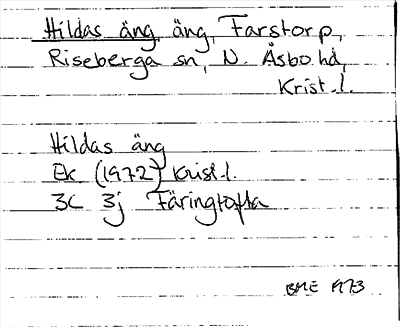 Hildas äng, äng, Farstorp,
Riseberga sn, N. Åsbo hd,
Krist. l.
Hildas äng
Ek (1972) Krist. l.
3C 3j Färingtofta
BME 1973